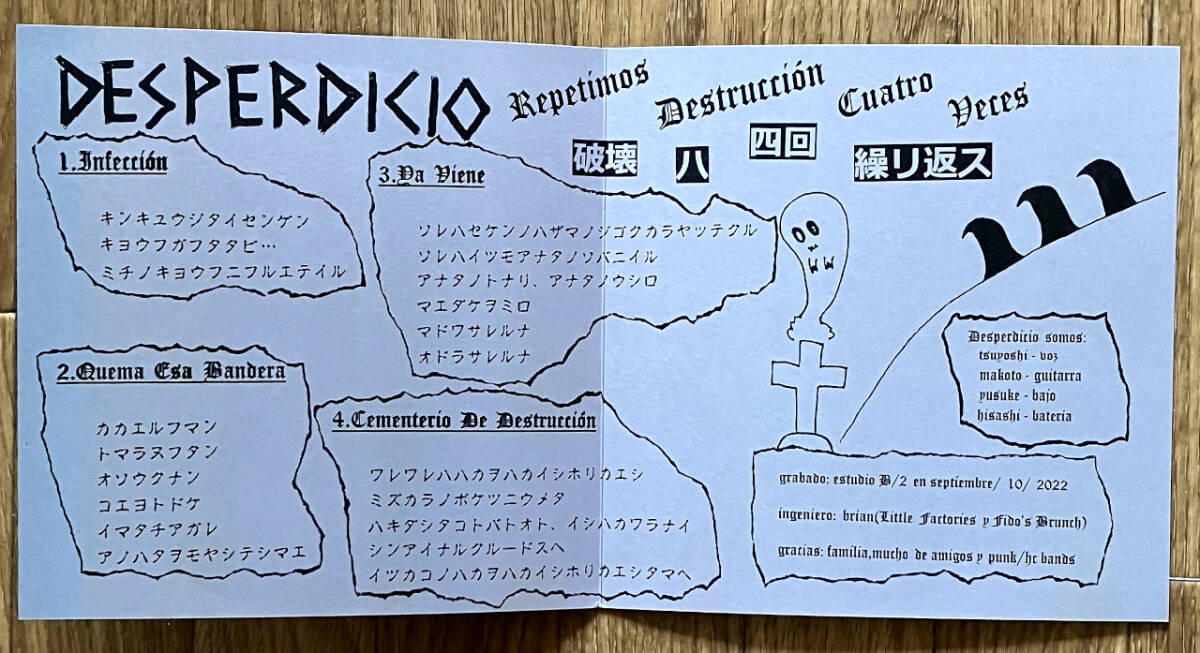 DESPERDICIO
Repetimos Destrucción Cuatro Veces
破壊 ハ 四回 繰リ返ス
1.Infección
キンキユウジタイセンゲン
キヨウフガフタタビ…
ミチノキヨウフニフルエテイル
2.Quema Esa Bandera
カカエルフマン
トマラヌフタン
オソウクナン
コエヨトドケ
イマタチアガレ
アノハタヲモヤシテシマエ
3.Ya Viene
ソレハセケンノハザマノジゴクカラヤツテクル
ソレハイツモアナタノソバニイル
アナタノトナリ、アナタノウシロ
マエダケヲミロ
マドワサレルナ
オドラサレルナ
4.Cementerio De Destrucción
ワレワレハハカヲハカイシホリカエシ
ミズカラノボケツニウメタ
ハキダシタコトバトオト、イシハカワラナイ
シンアイナルクルードスヘ
イツカコノハカヲハカイシホリカエシタマヘ
Desperdicio somos:
tsuyoshi - voz
makoto - guitarra
yusuke - bajo
hisashi - batería
grabado: estudio B/2 en septiembre/ 10/ 2022
ingeniero: brian(Little Factories y Fido's Brunch)
gracias: familia,mucho de amigos y punk/hc bands